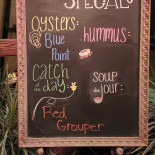 SPECIALS
oysters: hummus:
Blue
Point
Catch
of the day: Soup du jour:
Red
Grouper